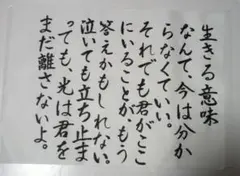 生きる意味
なんて、今は分か
らなくていい。
それでも君がここ
にいることがもう
答えかもしれない。
泣いても立ち止ま
っても、光は君を
まだ離さないよ。